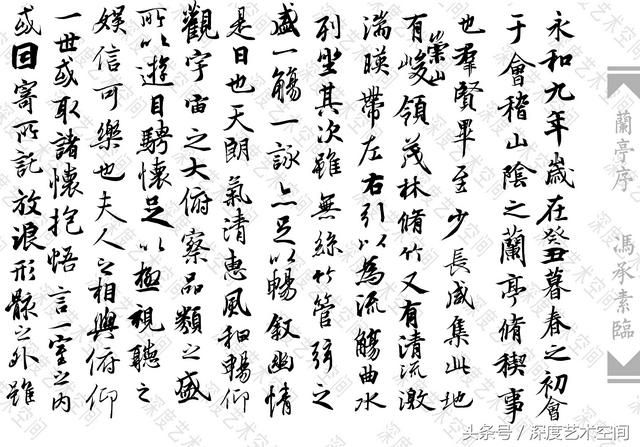 永和九年歲在癸丑暮春之初會
于會稽山陰之蘭亭脩稧事
也羣賢畢至少長咸集此地
有崇山峻領茂林脩竹又有清流激
湍暎帶左右引以為流觴曲水
列坐其次雖無絲竹管弦之
盛一觴一詠亦足以暢敘幽情
是日也天朗氣清惠風和暢仰
觀宇宙之大俯察品類之盛
所以遊目騁懷足以極視聽之
娛信可樂也夫人之相與俯仰
一世或取諸懷抱悟言一室之內
或因寄所託放浪形骸之外雖
蘭亭序 馮承素臨
头条号／深度艺术空间